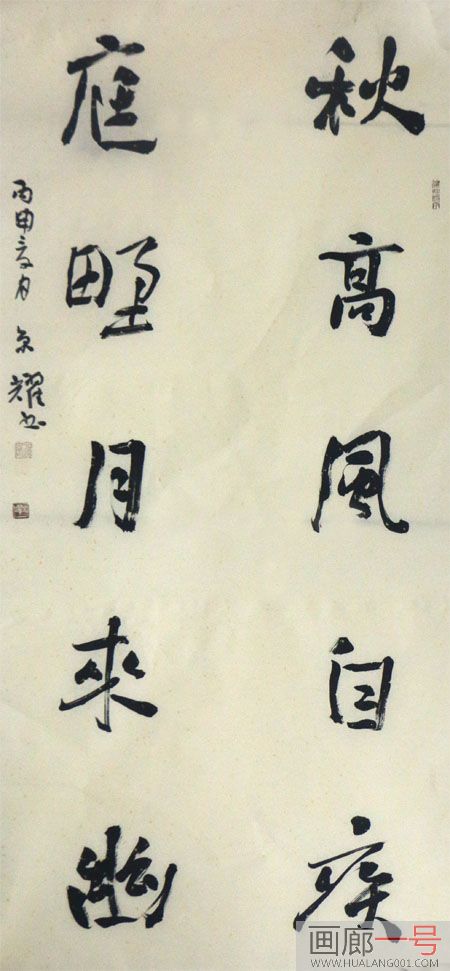 秋高風自疾
庭野月來幽
丙申夏月 京耀书
画廊一号
WWW.HUALANG001.COM